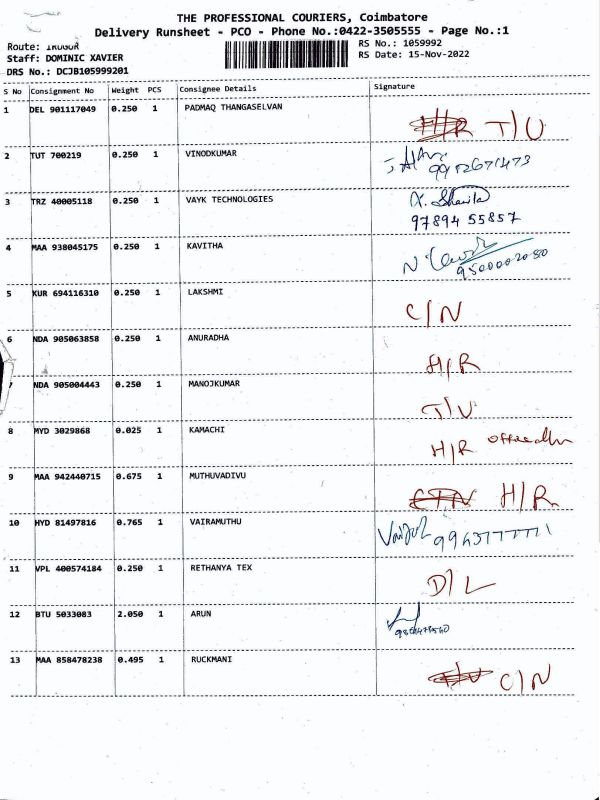 THE PROFESSIONAL COURIERS, Coimbatore
Delivery Runsheet - PCO - Phone No.:0422-3505555 - Page No.:1
Route: IRUGUR
RS No.: 1059992
Staff: DOMINIC XAVIER
RS Date: 15-Nov-2022
DRS No.: DCJB105999201
S No Consignment No Weight PCS Consignee Details Signature
1 DEL 901117049 0.250 1 PADMAQ THANGASELVAN T/U
2 TUT 700219 0.250 1 VINODKUMAR
3 TRZ 40005118 0.250 1 VAYK TECHNOLOGIES 97894 55857
4 MAA 938045175 0.250 1 KAVITHA 9500002080
5 KUR 694116310 0.250 1 LAKSHMI C/N
6 NDA 905063858 0.250 1 ANURADHA H/R
7 NDA 905004443 0.250 1 MANOJKUMAR T/U
8 MYD 3029868 0.025 1 KAMACHI H/R
9 MAA 942440715 0.675 1 MUTHUVADIVU H/R
10 HYD 81497816 0.765 1 VAIRAMUTHU
11 VPL 400574184 0.250 1 RETHANYA TEX D/L
12 BTU 5033083 2.050 1 ARUN
13 MAA 858478238 0.495 1 RUCKMANI C/N